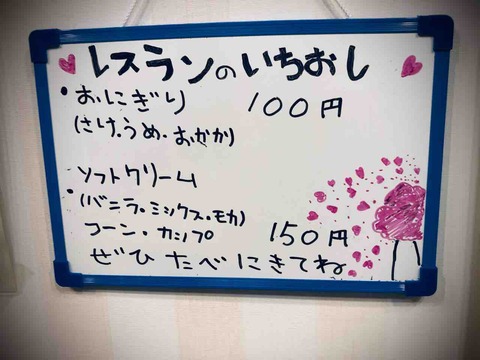 レスランのいちおし
・おにぎり 100円
(さけ・うめ・おかか)
ソフトクリーム
・(バニラ・ミックス・モカ)
コーン・カップ 150円
ぜひたべにきてね